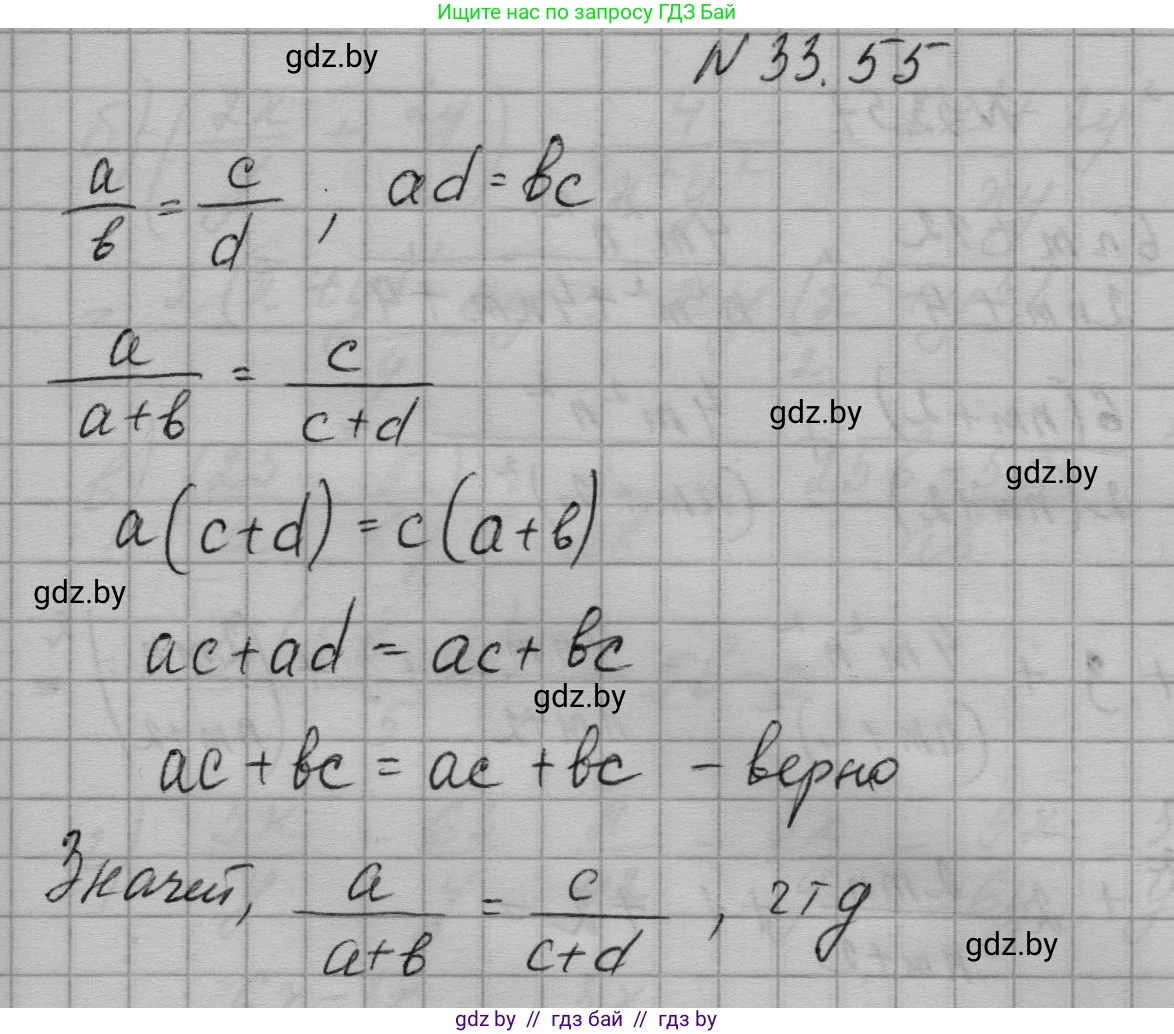 Ищите нас по запросу ГДЗ Бай
gdz.by
N 33.55
a/в = c/d , ad = вc
a/(a+в) = c/(c+d)
gdz.by
gdz.by
a(c+d) = c(a+в)
gdz.by
ac+ad = ac+вc
gdz.by
ac+вc = ac+вc – верно
Значит, a/(a+в) = c/(c+d) , чтд
gdz.by
gdz.by // гдз бай // гдз by